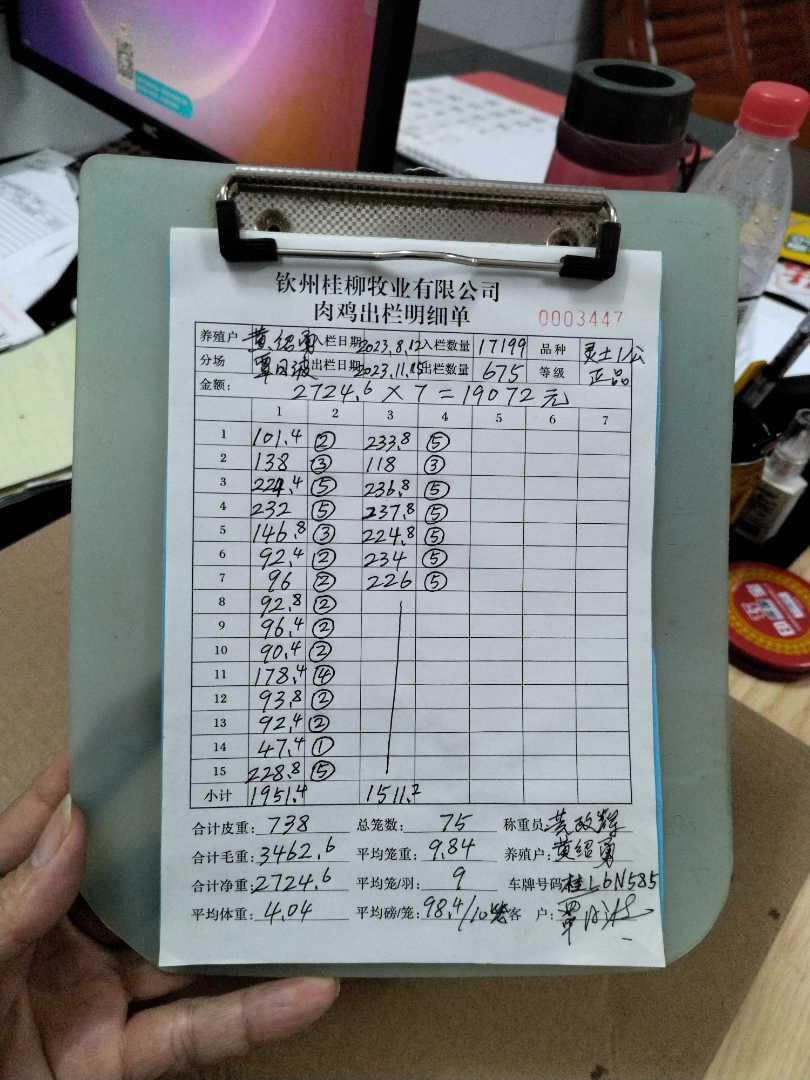 钦州桂柳牧业有限公司
肉鸡出栏明细单
0003447
养殖户 黄绍勇 入栏日期 2023.8.12 入栏数量 17199 品种 灵土1公
分场 覃日波 出栏日期 2023.11.15 出栏数量 675 等级 正品
金额: 2724.6 × 7 = 19072元
1 2 3 4 5 6 7
1 101.4 ② 233.8 ⑤
2 138 ③ 118 ③
3 224.4 ⑤ 236.8 ⑤
4 232 ⑤ 237.8 ⑤
5 146.8 ③ 224.8 ⑤
6 92.4 ② 234 ⑤
7 96 ② 226 ⑤
8 92.8 ②
9 96.4 ②
10 90.4 ②
11 178.4 ④
12 93.8 ②
13 92.4 ②
14 47.4 ①
15 228.8 ⑤
小计 1951.4 1511.2
合计皮重: 738 总笼数: 75 称重员:
合计毛重: 3462.6 平均笼重: 9.84 养殖户: 黄绍勇
合计净重: 2724.6 平均笼/羽: 9 车牌号码: 桂L6N585
平均体重: 4.04 平均磅/笼: 98.4/10 客 户: